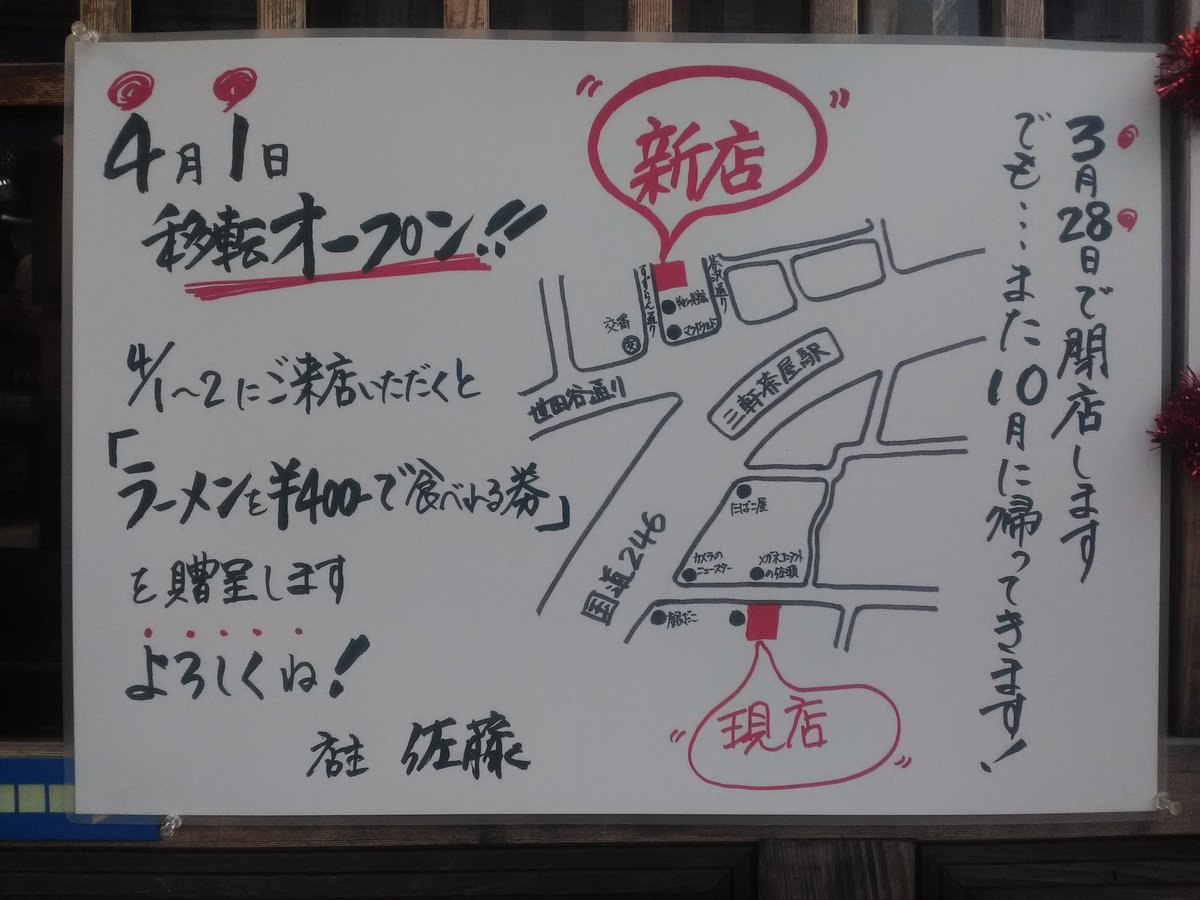 3月28日で閉店します
でも…また10月に帰ってきます!
4月1日
移転オープン!!
4/1~2にご来店いただくと
「ラーメンを¥400-で食べれる券」
を贈呈します
よろしくね!
店主 佐藤
新店
すずらん通り
茶沢通り
交番
マクドナルド
世田谷通り
三軒茶屋駅
国道246
たばこ屋
カメラの
ニュースター
メガネコンタクト
の弐萬
銀だこ
現店